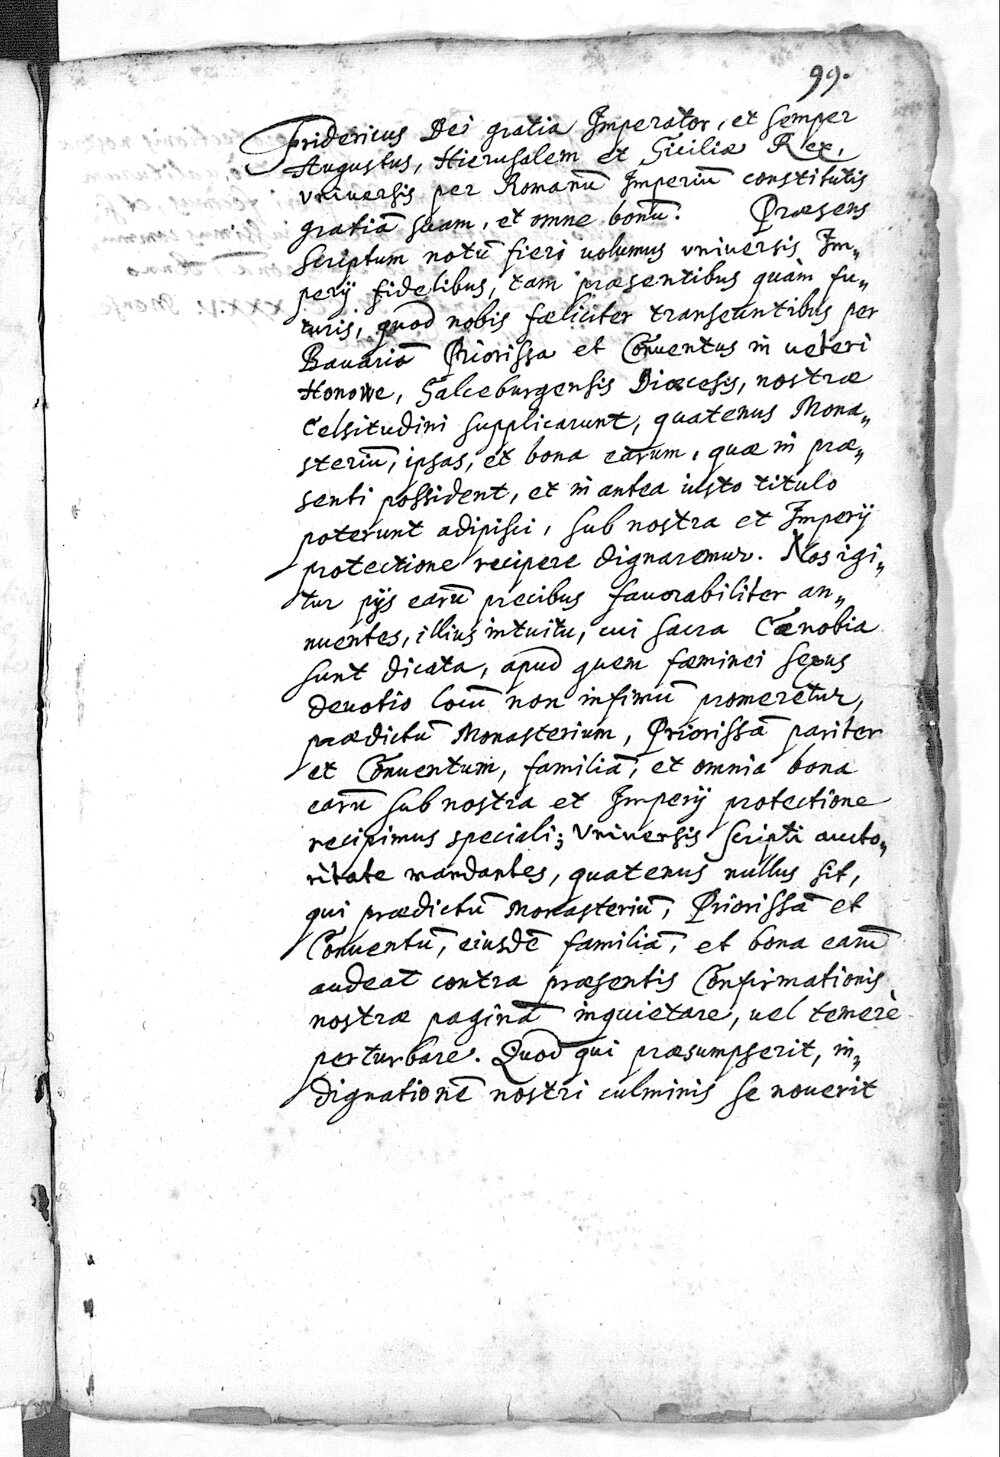 99.
Fridericus Dei gratia Imperator, et semper
Augustus, Hierusalem et Siciliæ Rex,
vniuersis per Romanū Imperiū constitutis
gratiā suam, et omne bonū. Præsens
scriptum notū fieri uolumus vniuersis Im„
perÿ fidelibus, tam præsentibus quàm fu„
turis, quod nobis fæliciter transeuntibus per
Bauariā Priorissa et Conuentus in ueteri
Honowe, Salceburgensis Diœcesis, nostræ
Celsitudini supplicarunt, quatenus Mona„
steriū, ipsas, et bona earum, quæ in præ„
senti possident, et in antea iusto titulo
poterunt adipisci, sub nostra et Imperÿ
protectione recipere dignaremur. Nos igi„
tur pÿs earū precibus fauorabiliter an„
nuentes, illius intuitu, cui sacra Cœnobia
sunt dicata, apud quem fœminei sexus
deuotio locū non infimū promeretur,
prædictū Monasterium, Priorissā pariter
et Conuentum, familiā, et omnia bona
earū sub nostra et Imperÿ protectione
recipimus speciali; vniuersis scripti aucto„
ritate mandantes, quatenus nullus sit,
qui prædictū Monasteriū, Priorissā et
Conuentū, eiusdē familiā, et bona earū
audeat contra præsentis Confirmationis
nostræ paginā inquietare, uel temerè
perturbare. Quod qui præsumpserit, in„
dignationē nostri culminis se nouerit